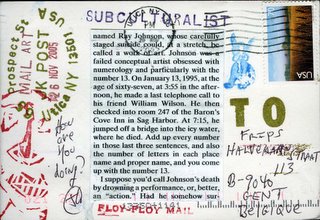 SUBCULTURALIST
MAIL ART
USA
named Ray Johnson, whose carefully
staged suicide could, at a stretch, be
called a work of art. Johnson was a
failed conceptual artist obsessed with
numerology and particularly with the
number 13. On January 13, 1995, at the
age of sixty-seven, at 3:55 in the after-
noon, he made a last telephone call to
his friend William Wilson. He then
checked into room 247 of the Baron's
Cove Inn in Sag Harbor. At 7:15, he
jumped off a bridge into the icy water,
where he died. Add up every number
in those last three sentences, and also
the number of letters in each place
name and proper name, and you come
up with the number 13.
I suppose you'd call Johnson's death
by drowning a performance, or, better,
an "action." Had he somehow sur-
FLOY PLOY MAIL
how
are
you
doing?
TO
113
B-9040
GENT
Belgique